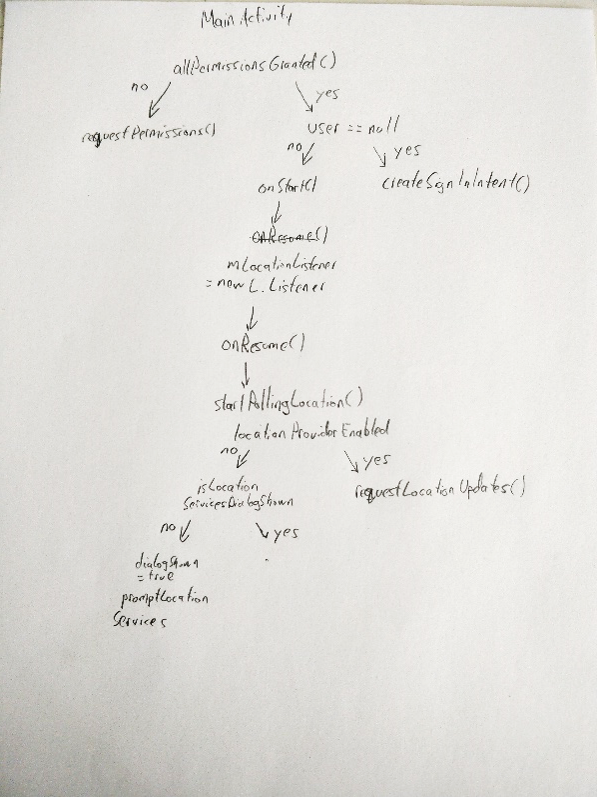 MainActivity
allPermissionsGranted()
no
yes
requestPermissions()
user == null
no
yes
onStart()
createSignInIntent()
onResume()
mLocationListener
= new L. Listener
onResume()
startPollingLocation()
locationProviderEnabled
no
yes
isLocation
ServicesDialogShown
requestLocationUpdates()
no
yes
dialogShown
= true
promptLocation
Services